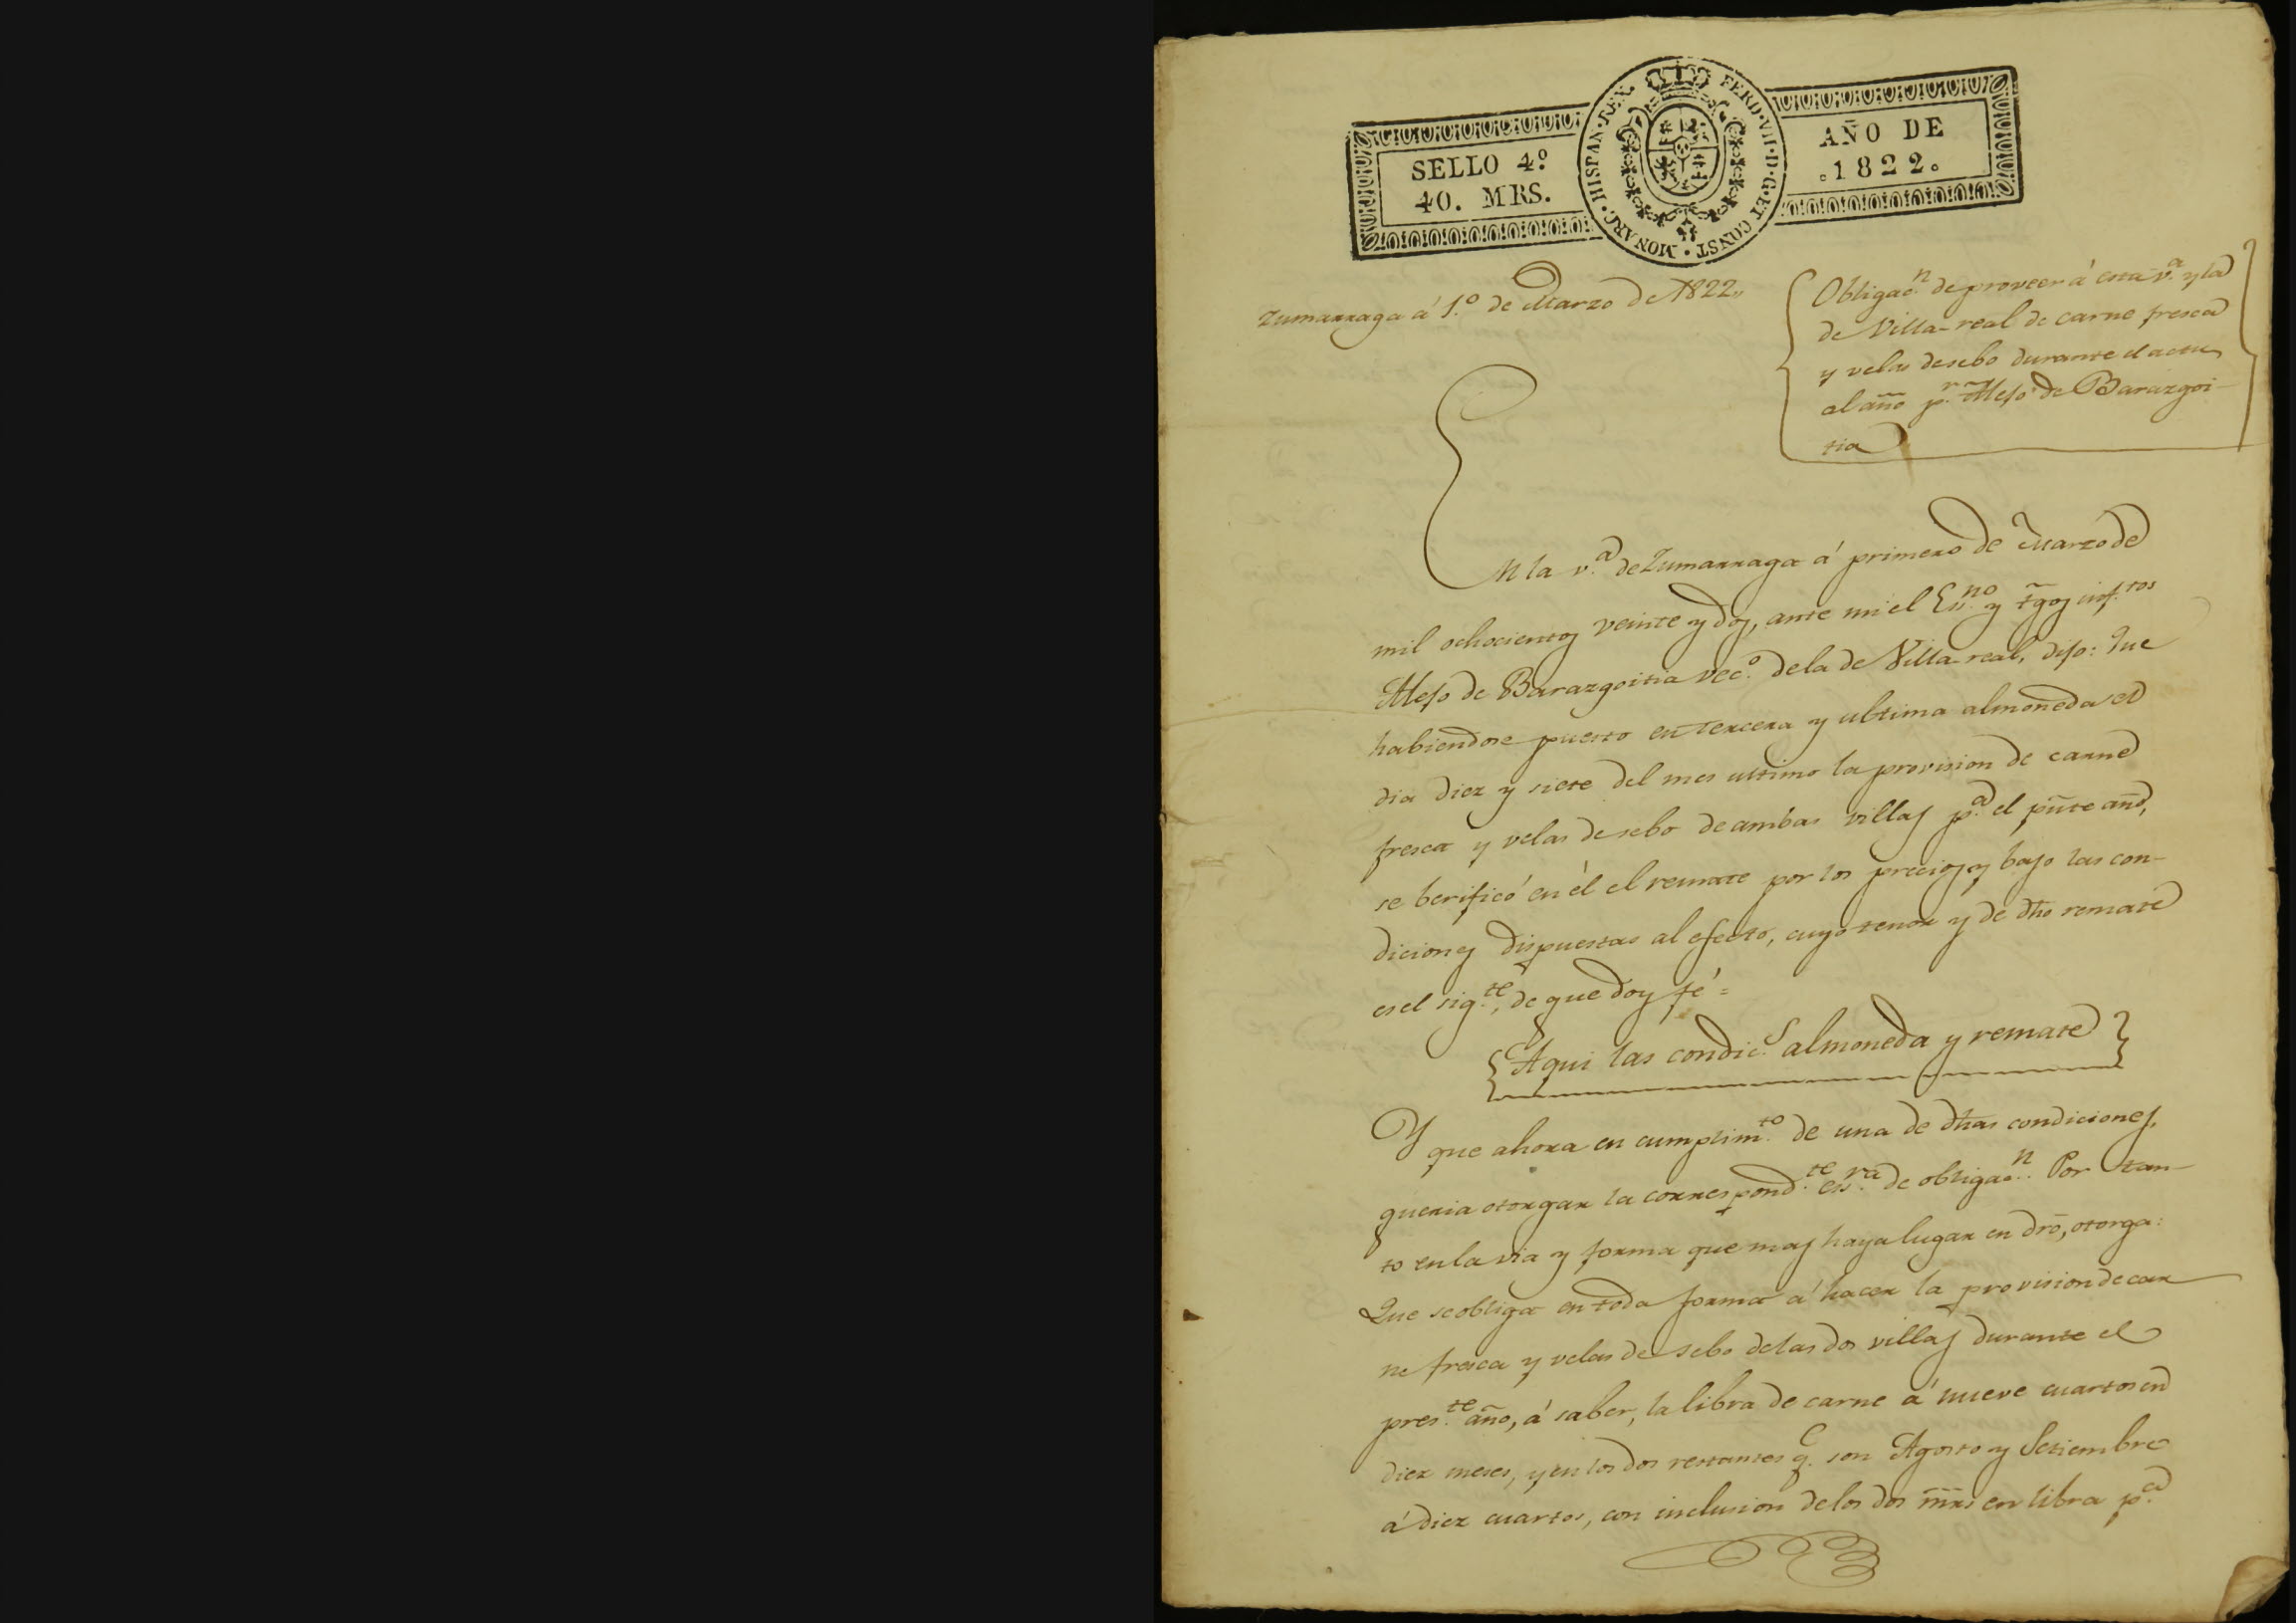 SELLO 4º
40. MRS.
HISPAN·REX. FERD·VII·D·G·ET CONST·MONARC·
AÑO DE
1822.
Zumarraga á 1.º de Marzo de 1822,,
Obligac.n de proveer á esta v.a y la
de Villa-real de carne fresca
y velas de sebo durante el actu
al año p.r Alejo de Barazgoi-
tia
En la v.a de Zumarraga á primero de Marzo de
mil ochocientos veinte y dos, ante mi el Ess.no y tgos inf.tos
Alejo de Barazgoitia vec.º de la de Villa-real, dijo: Que
habiendose puesto en tercera y ultima almoneda el
dia diez y siete del mes ultimo la provision de carne
fresca y velas de sebo de ambas villas p.a el pñte año,
se berificó en él el remate por los precios y bajo las con-
diciones dispuestas al efecto, cuyo tenor y de dho remate
es el sig.te, de que doy fé =
Aqui las condic.s almoneda y remate
Y que ahora en cumplim.to de una de dhas condiciones,
queria otorgar la correspond.te ess.ra de obligac.n Por tan-
to en la via y forma que mas haya lugar en dro, otorga:
Que se obliga en toda forma á hacer la provision de car
ne fresca y velas de sebo de las dos villas durante el
pres.te año, á saber, la libra de carne á nueve cuartos en
diez meses, y en los dos restantes q.e son Agosto y Setiembre
á diez cuartos, con inclusion de los dos mrs en libra p.a